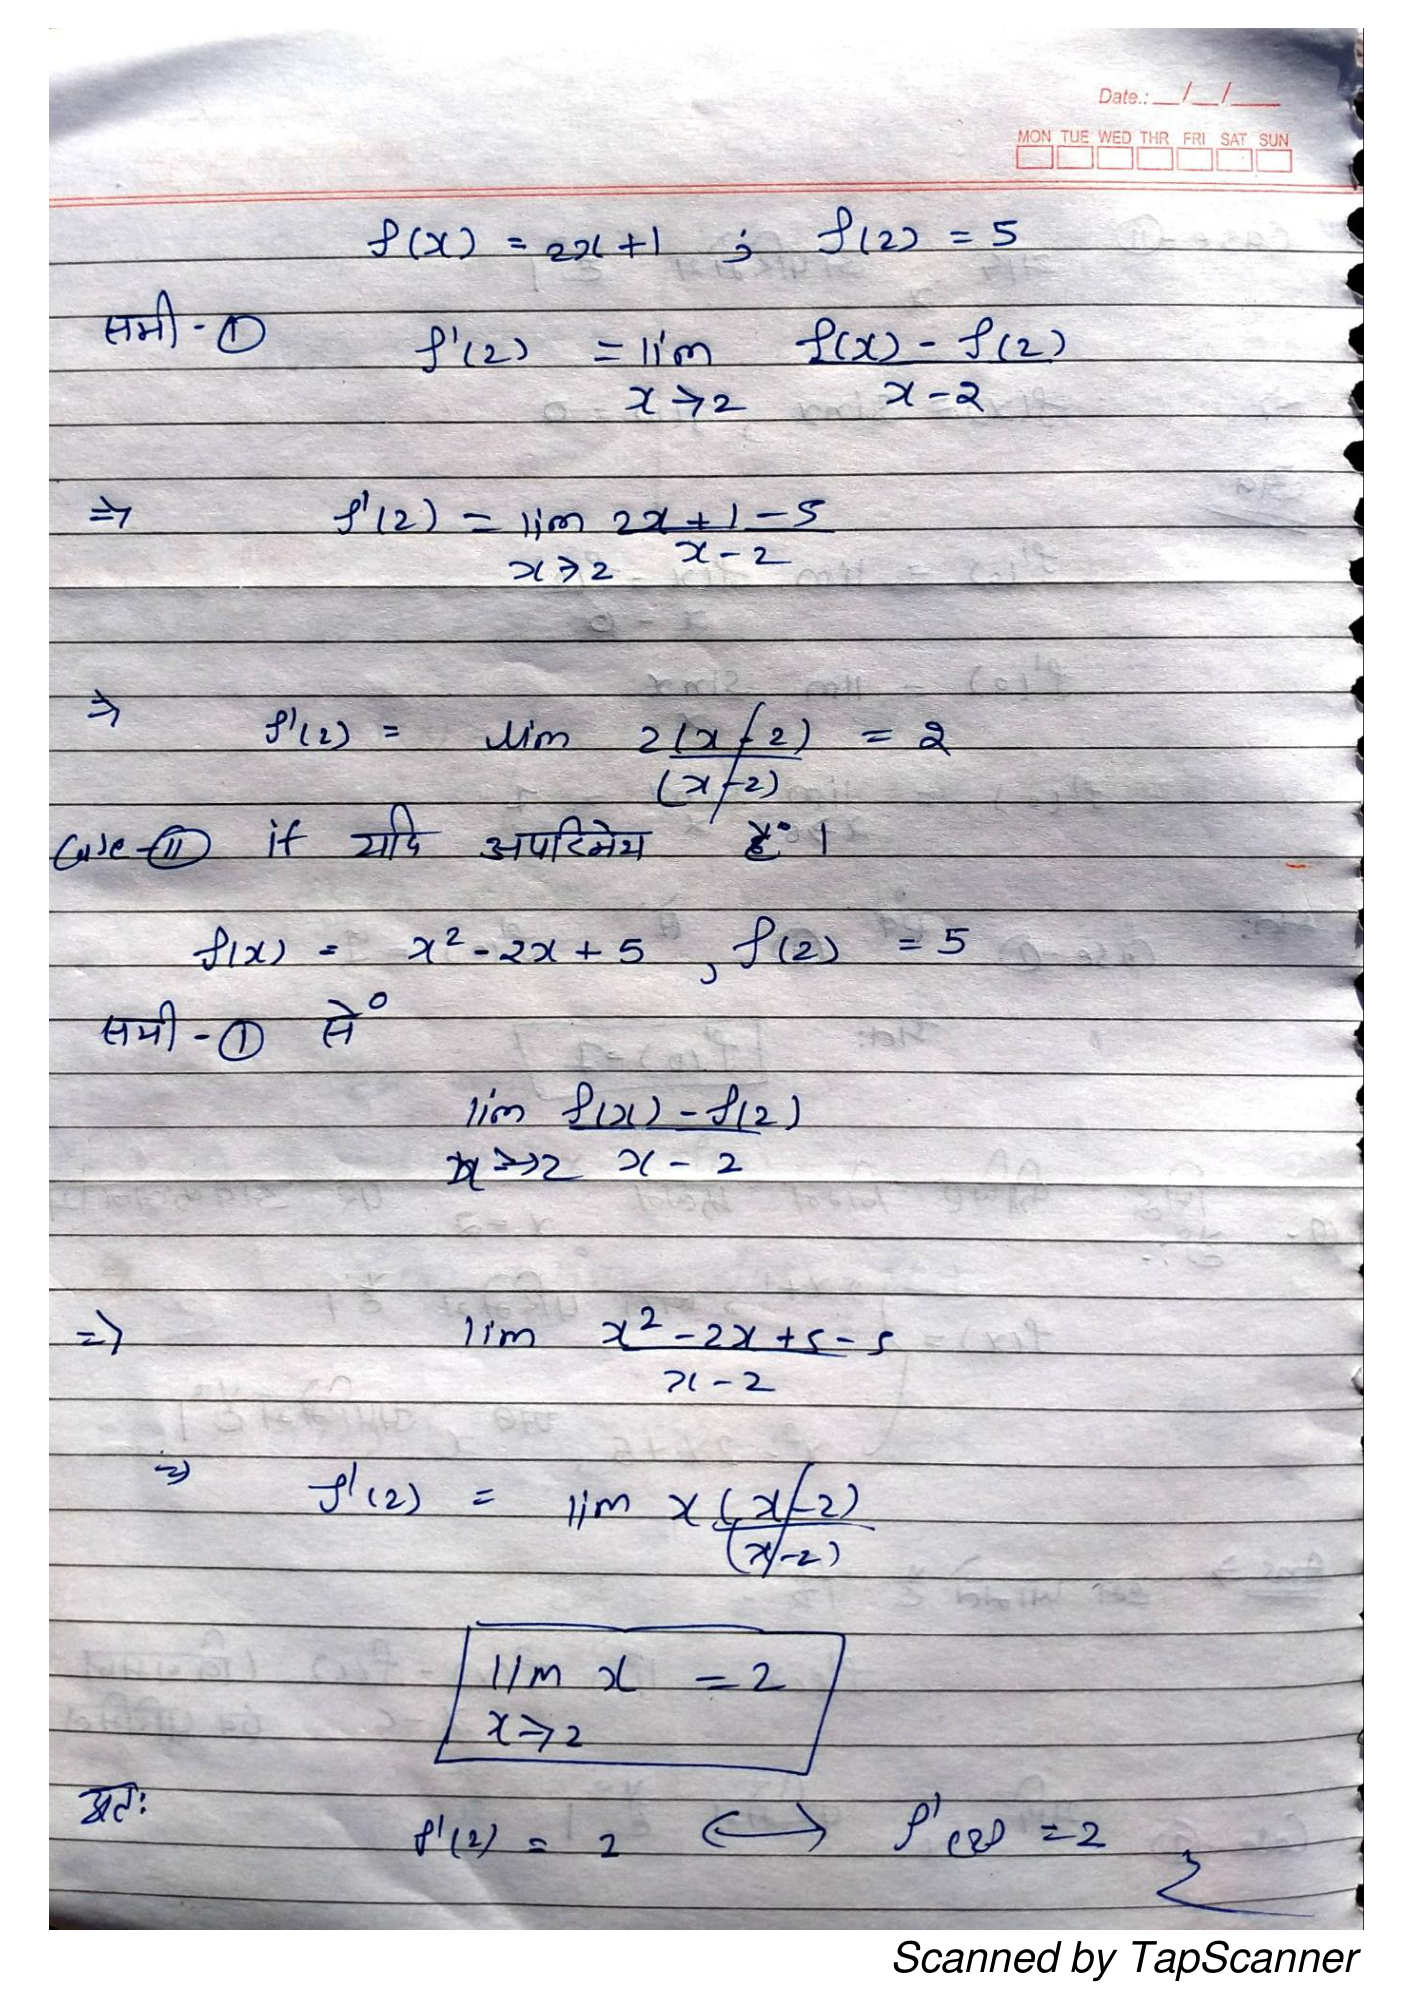 Date.: __/__/___
MON TUE WED THR FRI SAT SUN
f(x) = 2x+1 ; f(2) = 5
समी - ① f'(2) = lim f(x) - f(2)
x→2 x-2
⇒ f'(2) = lim 2x+1-5
x→2 x-2
⇒ f'(2) = lim 2(x-2) = 2
(x-2)
Case-II if यदि अपरिमेय है।
f(x) = x²-2x+5 , f(2) = 5
समी - ① से
lim f(x) - f(2)
x→2 x-2
⇒ lim x²-2x+5-5
x-2
⇒ f'(2) = lim x(x-2)
(x-2)
lim x = 2
x→2
अतः f'(2) = 2 ⟷ f'(2) = 2
Scanned by TapScanner